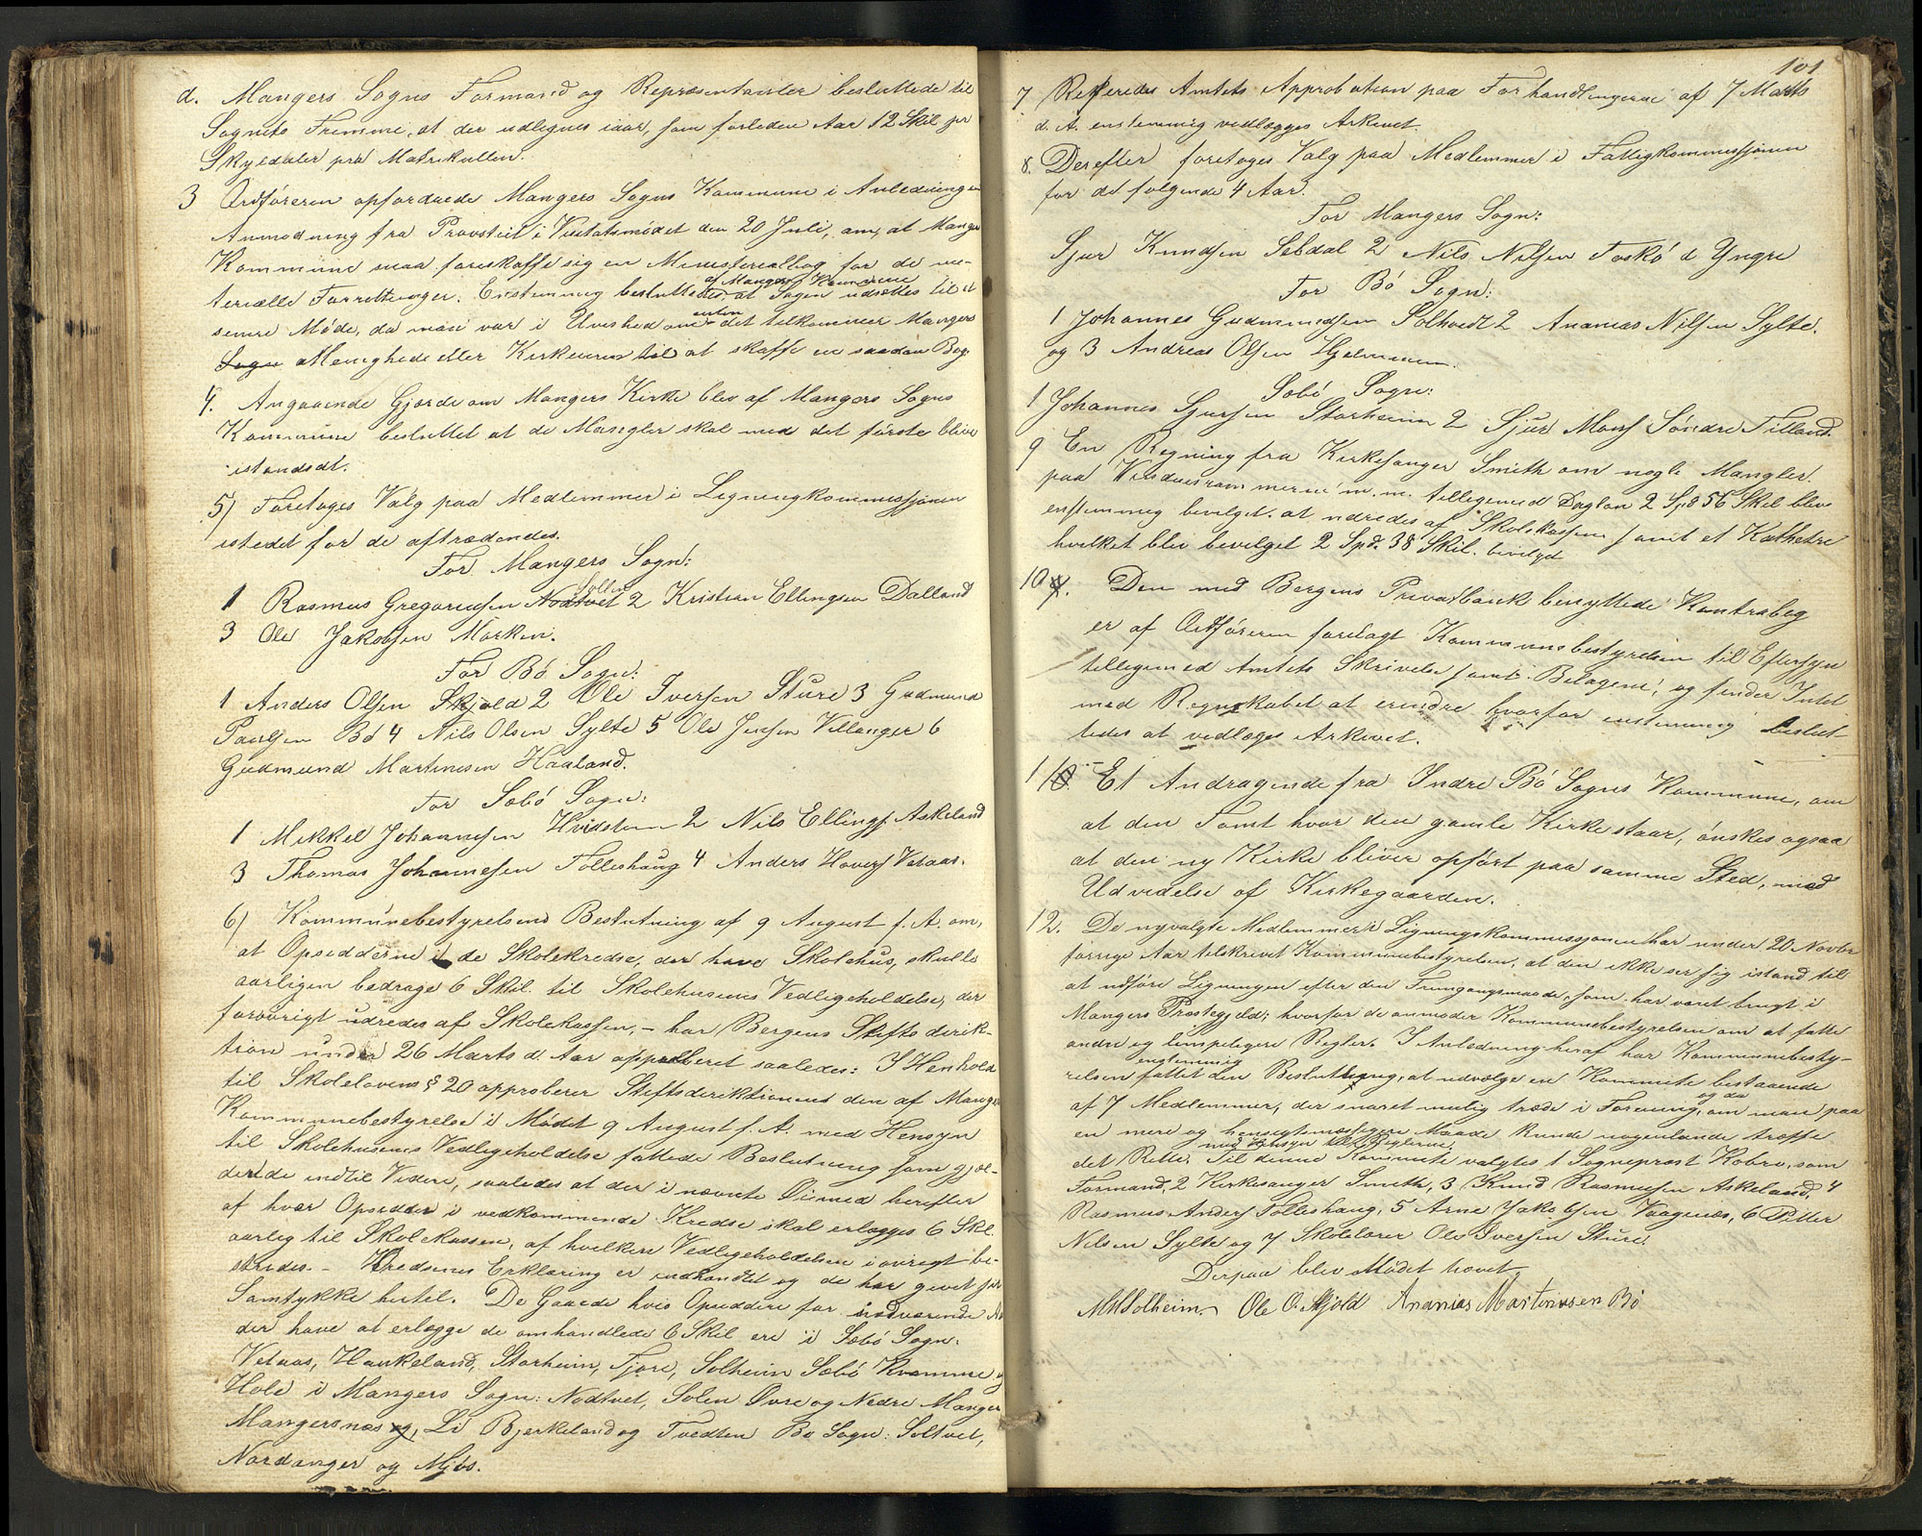 d. Mangers Sogns Formand og Repræsentanter besluttede til
Sognets Fremme, at der udlignes iaar, som forleden Aar 12 Skil pr
Skyldaler pra Matrikullen.
3 Ordføreren opfordrede Mangers Sogns Kommune i Anledningen
Anmodning fra Provstiet i Visitatsmødet den 20 Juli, om, at Manger
Kommune maa foreskaffe sig en Ministerialbog for de mi-
terielle Forretninger. Enstemmig besluttedes af Mangers Kommune at Sagen udsættes til et
senere Møde, da man var i Uvished om enten det tilkommer Mangers
Sogn Menighed eller Kirkeeieren til at skaffe en saadan Bog.
4. Angaaende Gjærde om Mangers Kirke blev af Mangers Sogns
Kommune besluttet at de Mangler skal med det første blive
istandsdt.
5) Foretoges Valg paa Medlemmer i Ligningkommissjonen
istedet for de aftrædendes.
For Mangers Sogn:
1 Rasmus Gregoriussen Nodtvet Sollen 2 Kristian Ellingsen Dalland
3 Ole Jakobsen Marken.
For Bø Sogn:
1 Anders Olsen Skjold 2 Ole Iversen Sture 3 Gudmund
Paulsen Bø 4 Nils Olsen Sylte 5 Ole Jensen Villanger 6
Gudmund Martinesen Haaland.
For Sæbø Sogn:
1 Mikkel Johannesen Hvidsteen 2 Nils Ellings Askeland
3 Thomas Johannesen Tolleshaug 4 Anders Havers Vataas.
6) Kommunebestyrelsens Beslutning af 9 August f. A. om,
at Opsidderne i de Skolekredse, der have Skolehus, skulle
aarligen bedrage 6 Skil. til Skolehusenes Vedligeholdelse, der
forøvrigt udredes af Skolekassen, - har Bergens Stiftsdirik-
tion under 26 Marts d. Aar approberet saaledes: I Henhold
til Skolelovens § 20 approberer Stiftsdirektionens den af Manger
Kommunebestyrelse i Mødet 9 August f. A. med Hensyn
til Skolehusenes Vedligeholdelse fattede Beslutning som gjæl-
dende indtil Videre, saaledes at der i nævnte Øiemed herefter
af hver Opsidder i vedkommende Kredse skal erlægges 6 Skl.
aarlig til Skolekassen, af hvilken Vedligeholdelsen iøvrigt be-
strides. - Kredsenes Erklæring er indhandlet og de har givet sit
Samtykke hertil. De Gaarde hvis Opsiddere for nærværende Aar
der have at erlægge de omhandlede 6 Skil ere i Sæbø Sogn:
Vetaas, Haukeland, Storheim, Fjøre, Solheim Sæbø Kvamme og
Hole i Mangers Sogn: Nodtvet, Solen Øvre og Nedre Manger
Mangersnæs og, Li Bjerkeland og Tvedten Bø Sogn: Soltvet,
Nordanger og Mjøs.
101
7 Refereredes Amtets Approbation paa Forhandlingerne af 7 Marts
d. A. enstemmig vedlægges Arkivet.
8. Derefter foretoges Valg paa Medlemmer i Fattigkommissjonen
for de følgende 4 Aar.
For Mangers Sogn:
Sjur Knudsen Sebdal 2 Nils Nilsen Toskø d Yngre
For Bø Sogn:
1 Johannes Gudmundsen Solhvedt 2 Ananias Nilsen Sylte.
og 3 Andreas Olsen Hjelmmen.
Sæbø Sogn:
1 Johannes Sjursen Storheim 2 Sjur Mons Søndre Titland.
9 En Regning fra Kirkesanger Smith om nogle Mangler
paa Vinduesrammerne m. m. tilligemed Dagløn 2 Spd 56 Skil blev
enstemmig bevilget at udredes af Skolekassen samt et Kathetre
hvilket blev bevilget 2 Spd. 38 Skil. bevilget
10. Den med Bergens Privatbank benyttede Kontrabog
er af Ordføreren forelagt Kommunebestyrelsen til Eftersyn
tilligemed Amtets Skrivelse samt Bilagene, og finder Intet
med Regnskabet at erindre hvorfor enstemmig beslut-
tedes at vedlæges Arkivet.
11. Et Andragende fra Indre Bø Sogns Kommune, om
at den Tomt hvor den gamle Kirke staar, ønskes ogsaa
at den ny Kirke bliver opført paa samme Sted, med
Udvidelse af Kirkegaarden.
12. De nyvalgte Medlemmer i Ligningskommissjonen har under 20 Novbr
forrige Aar tilskrevet Kommunebestyrelsen, at den ikke ser sig istand til
at udføre Ligningen efter den Fremgangsmaade, som har været brugt i
Mangers Præstegjeld; hvorfor de anmoder Kommunebestyrelsen om at fatte
andre og lempeligere Regler. I Anledning heraf har Kommunebesty-
relsen enstemmig fattet den Beslutning, at udvælge en Kommite bestaaende
af 7 Medlemmer, der snarest mulig træde i Forening, og da om man paa
en mere og hensegtsmæssigere Maade kunde nogenlunde træffe
det Rette med Hensyn til Reglerne. Til denne Kommite valgtes 1 Sogneprest Kobro, som
Formand, 2 Kirkesanger Smith, 3 Knud Rasmussen Askeland, 4
Rasmus Anders Tolleshaug, 5 Arne Jakobsen Vaagenes, 6 Petter
Nilsen Sylte og 7 Skolelærer Ole Iversen Sture.
Derpaa blev Mødet hævet
MHSolheim. Ole O. Skjold Ananias Martinussen Bø